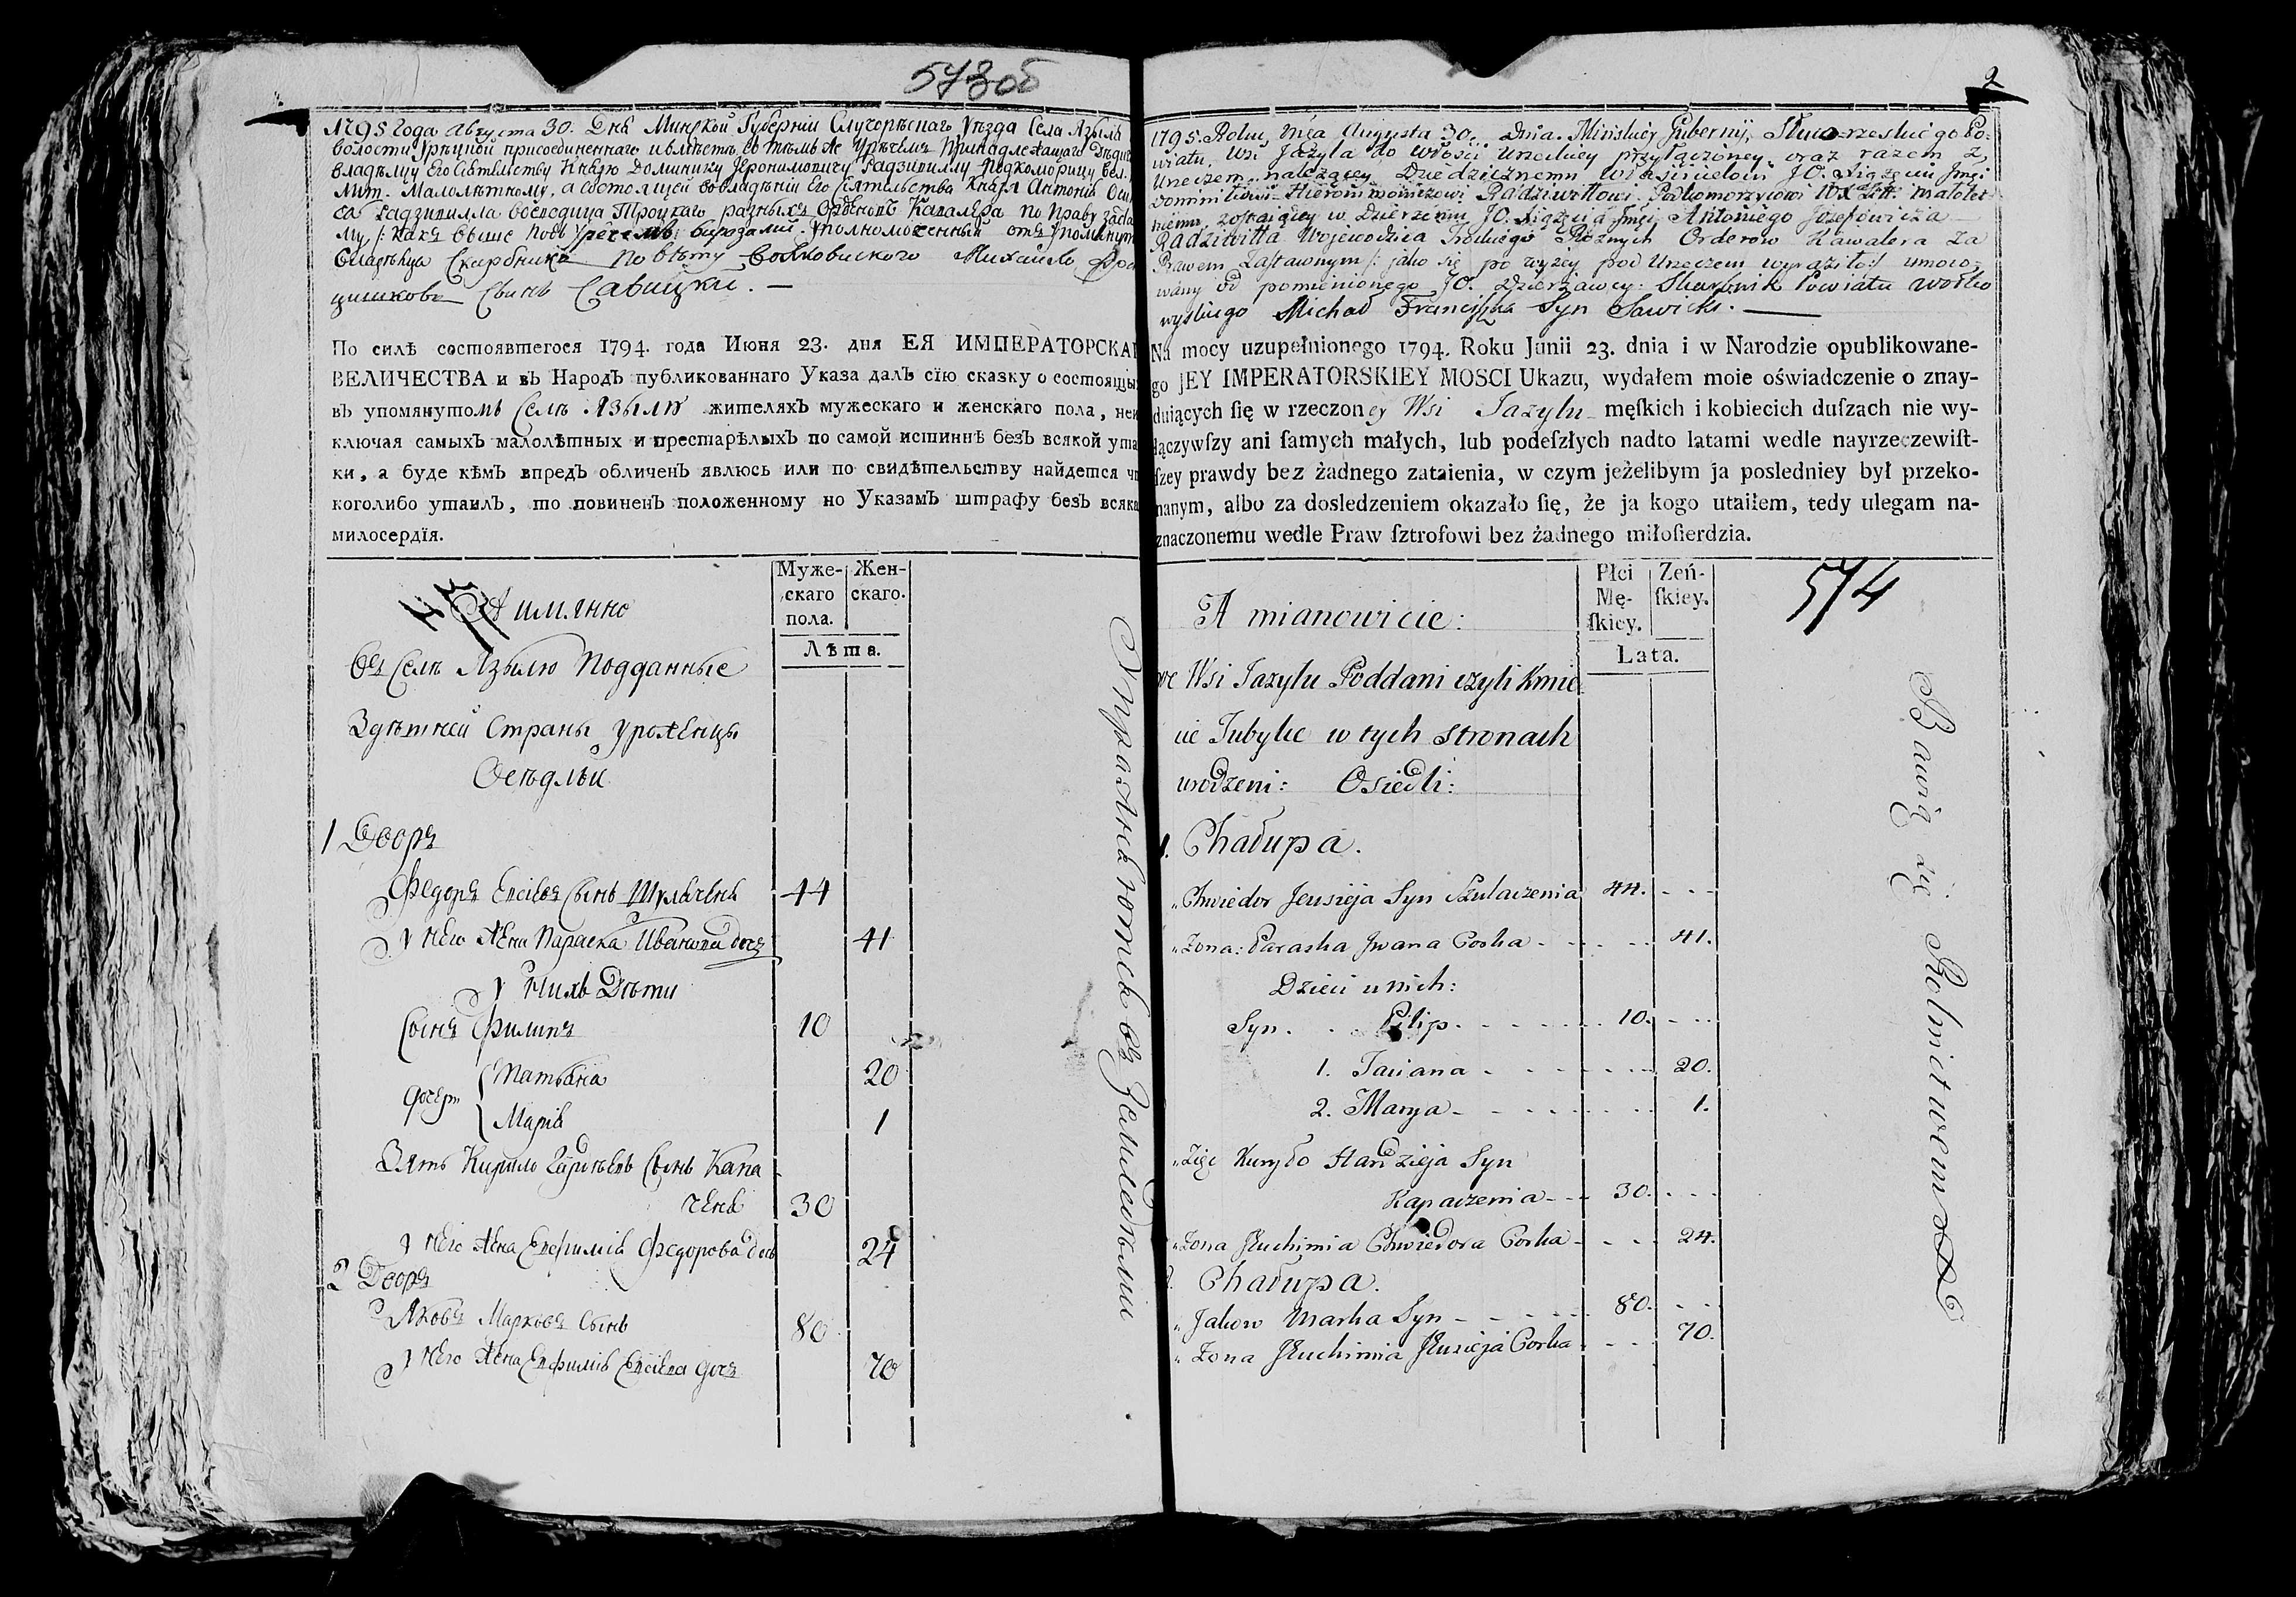 573об
1795 Года Августа 30. Дня Минской Губернии Слуцорѣцкаго Уѣзда Села Языля
волости Урѣцкой присоединеннаго и вместѣ со тѣмъ же Урѣчемъ принадлежащаго Дѣдич
владѣлцу Его Сіятельству Князю Доминику Іеронимовичу Радзивилу Подкоморицу вел.
Лит. Малолѣтному, а состоящей во владѣніи Его Сіятельства Князя Антонія Оси
са Радзивилла воеводица Троцкаго разныхъ Орденовъ Кавалера по праву заста
му, /: какъ выше подъ Уречемъ виразами: Уполномоченный отъ упомянут
Владѣлца Скарбникъ Повѣту Волковиского Михайло Фра
цишковъ Сынъ Савицки. —
По силѣ состоявшегося 1794. года Июня 23. дня ЕЯ ИМПЕРАТОРСКА
ВЕЛИЧЕСТВА и въ Народъ публикованнаго Указа далъ сїю сказку о состоящы
въ упомянутомъ Селѣ Языль жителяхъ мужескаго и женскаго пола, неи
ключая самыхъ малолѣтных и престарѣлыхъ по самой истиннѣ безъ всякой ута
ки, а буде кѣмъ впредь обличенъ явлюсь или по свидѣтельству найдется чт
коголибо утаилъ, то повиненъ положенному по Указамъ штрафу безъ всяка
милосердїя.
А имянно
Муже-
скаго
пола.
Жен-
скаго.
Лѣта.
Въ Селѣ Язылю Подданные
Здѣшней Страны уроженцы
Осѣдлы
1 Дворъ
Федоръ Евсіевъ Сынъ Шулаченя 44
у него жена Параска Иванова дочъ 41
у нихъ Дѣти
Сынъ Филипъ 10
дочери Татьяна 20
Марія 1
Зять Кирило Гардѣевъ Сынъ Капа-
ченя 30
у него жена Евфимія Федорова дочъ 24
2 Дворъ
Яковъ Марковъ Сынъ 80
у него жена Евфимія Евсіева дочъ 70
Упражняются въ Земледѣлии
2
1795. Roku, Mca Augusta 30. Dnia. Minskiey Gubernij, Słuco-rzeskiego Po-
wiatu, Wsi Jazyla do Włości Urzeckiey przyłączoney, oraz razem z
Urzeczem należącey Dziedzicznemu Włascicielowi JO. Xiążęciu Jmci
Dominikowi Hieronimowiczowi Radziwiłłowi Podkomorzycowi WX Litt. małolet-
niemu, zostaiącey w Dzierżeniu JO. Xiążęcia Jmci Antoniego Jozefowicza
Radziwiłła Wojewodzica Trockiego Roznych Orderow Kawalera Za
Prawem Zastawnym /: jako się po wyżey pod Urzeczem wyraziło :/ umoco-
wany od pomienionego JO. Dzierżawcy. Skarbnik Powiatu Wołko
wyskiego Michał Franciszka Syn Sawicki. —
Na mocy uzupełnionego 1794. Roku Junii 23. dnia i w Narodzie opublikowane-
go JEY IMPERATORSKIEY MOSCI Ukazu, wydałem moie oświadczenie o znay-
duiących ſię w rzeczoney Wsi Jazylu męſkich i kobiecich duſzach nie wy-
łączywſzy ani ſamych małych, lub podeſzłych nadto latami wedle nayrzeczewiſt-
ſzey prawdy bez żadnego zataienia, w czym jeżelibym ja posledniey był przeko-
nanym, albo za dosledzeniem okazało ſię, że ja kogo utaiłem, tedy ulegam na-
znaczonemu wedle Praw ſztrofowi bez żadnego miłoſierdzia.
A mianowicie:
Płci
Mę-
ſkiey.
Zeń-
ſkiey.
Lata.
574
we Wsi Jazylu Poddani czyli Kmie
cie Tubylce w tych stronach
urodzeni: Osiedli:
1. Chałupa.
Chwiedor Jeusieja Syn Szulaczenia 44.
Zona: Paraska Jwana Corka 41.
Dzieci u nich:
Syn. Pilip. 10.
1. Taciana 20.
2. Marya 1.
Zięć Kuryło Hardzieja Syn
Kapaczenia 30.
Zona Jeuchimia Chwiedora Corka 24.
2. Chałupa.
Jakow Marka Syn 80.
Zona Jeuchimia Jeusieja Corka 70.
Bawią się Rolnictwem